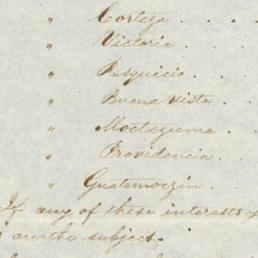 " Corteza . . .
" Victoria . . .
" Resquicio . . .
" Buena Vista . . .
" Moctezuma . .
" Providencia . .
" Guatemoczin . .
If any of these interests
on the subject.